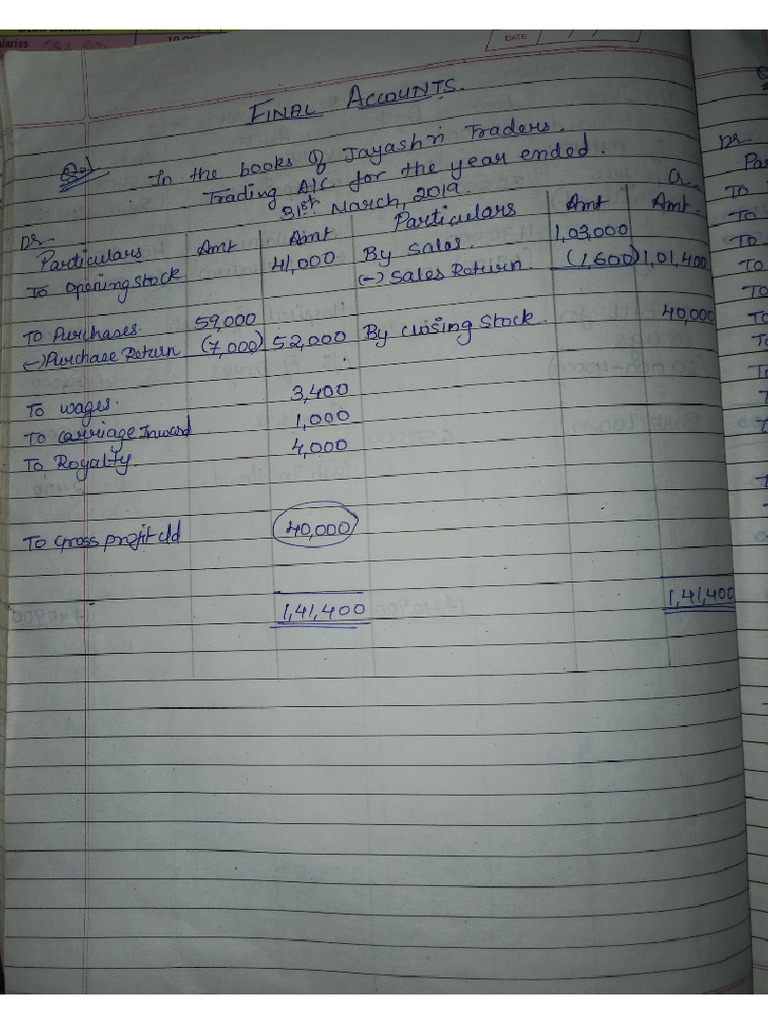 DATE
FINAL ACCOUNTS.
Q.1 In the books of Jayashri Traders.
Trading A/C for the year ended.
31st March, 2019.
Dr. Cr.
Particulars Amt Amt Particulars Amt Amt.
To Opening Stock 41,000 By Sales. 1,03,000
(-) Sales Return. (1,600) 1,01,400
To Purchases. 59,000
(-) Purchase Return (7,000) 52,000 By Closing Stock. 40,000
To wages. 3,400
To carriage Inward 1,000
To Royalty 4,000
To Gross profit c/d 40,000
1,41,400 1,41,400
Dr.
To
To
To
To
To